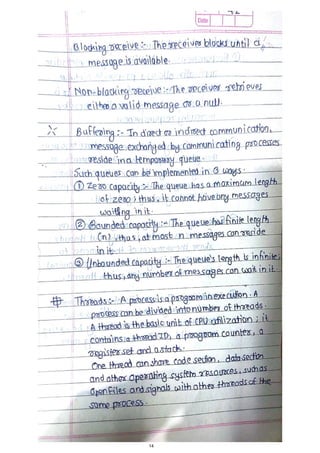 Date
Blocking receive :- The receiver blocks until a
message is available.
Non-blocking receive :- The receiver retrieves
either a valid message or a null.
Buffering :- In direct or indirect communication,
message exchanged by communicating processes
reside in a temporary queue.
Such queues can be implemented in 3 ways.
① Zero capacity :- The queue has a maximum length
of zero; thus, it cannot have any messages
waiting in it.
② Bounded capacity :- The queue has finite length
(n); thus, at most n messages can reside
in it.
③ Unbounded capacity :- The queue's length is infinite,
thus, any number of messages can wait in it.
# Threads :- A process is a program in execution. A
process can be divided into number of threads.
A thread is the basic unit of CPU utilization; it
contains a thread ID, a program counter, a
register set and a stack.
One thread can share code section, data section
and other operating system resources, such as
open files and signals with other threads of the
same process.
14